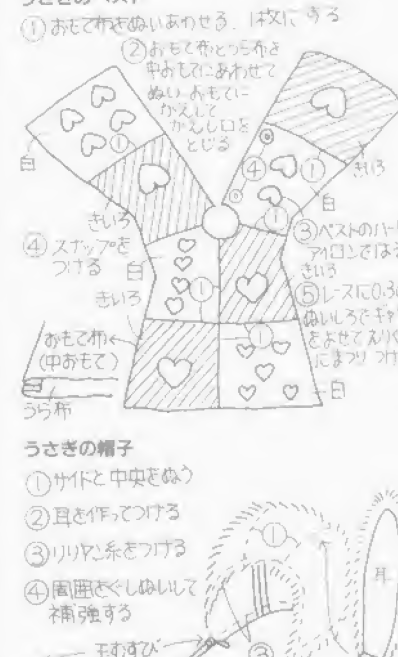 うさぎのベスト
①おもて布をぬいあわせる. 1枚にする
②おもて布とうら布を
中おもてにあわせて
ぬい おもてに
かえして
かえし口を
とじる
白
①
きいろ
④
①
きいろ
白
①
④スナップを
つける
白
きいろ
①
③ベストのハート
アイロンではる
きいろ
⑤レースに0.3
ぬいしろでギャ
をよせてえりぐ
にまつりつけ
①
おもて布
(中おもて)
白
うら布
白
うさぎの帽子
①サイドと中央をぬう
②耳を作ってつける
③リリヤン糸をつける
④周囲をぐしぬいして
補強する
①
耳
玉むすび
③